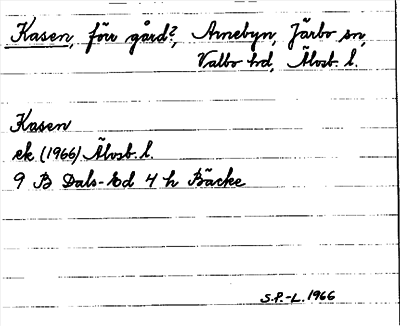 Kasen, förr gård?, Arnebyn, Järbo sn,
Valbo hd, Älvsb. l.
Kasen
ek (1966) Älvsb. l.
9 B Dals-Ed 4 h Bäcke
S.P.-L. 1966